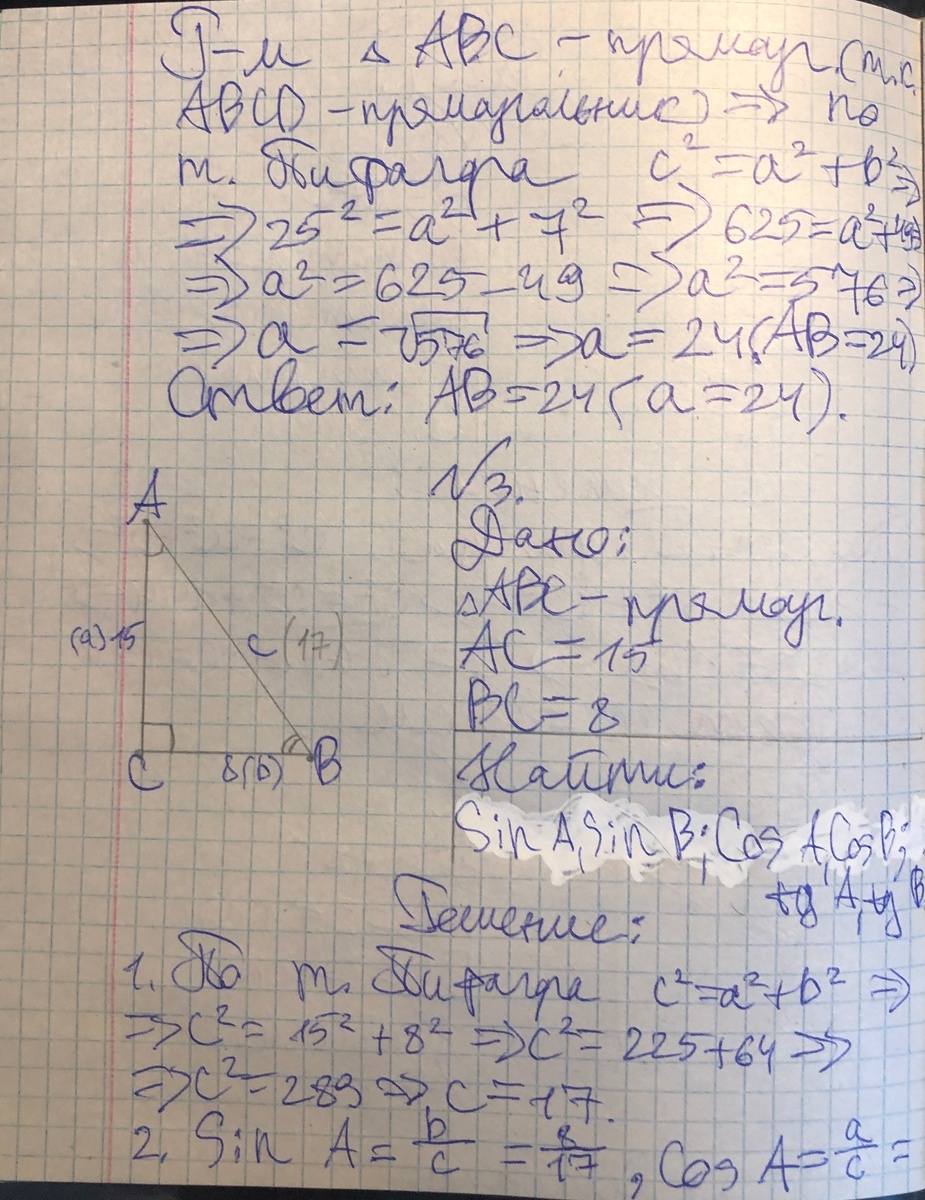 Р-м △ ABC - прямоуг. (т.к.
ABCD - прямоугольник) => по
т. Пифагора c² = a² + b² =>
=> 25² = a² + 7² => 625 = a² + 49 =>
=> a² = 625 - 49 => a² = 576 =>
=> a = √576 => a = 24 (AB = 24)
Ответ: AB = 24 (a = 24).
№3.
Дано:
△ABC - прямоуг.
AC = 15
BC = 8
Найти:
Sin A, Sin B; Cos A, Cos B;
tg A, tg B
A
(a) 15
c (17)
C
8(b)
B
Решение:
1. По т. Пифагора c² = a² + b² =>
=> c² = 15² + 8² => c² = 225 + 64 =>
=> c² = 289 => c = 17.
2. Sin A = b/c = 8/17, Cos A = a/c =